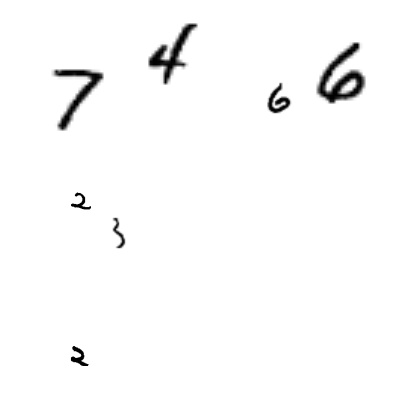 7 4 6 6
2
3
2